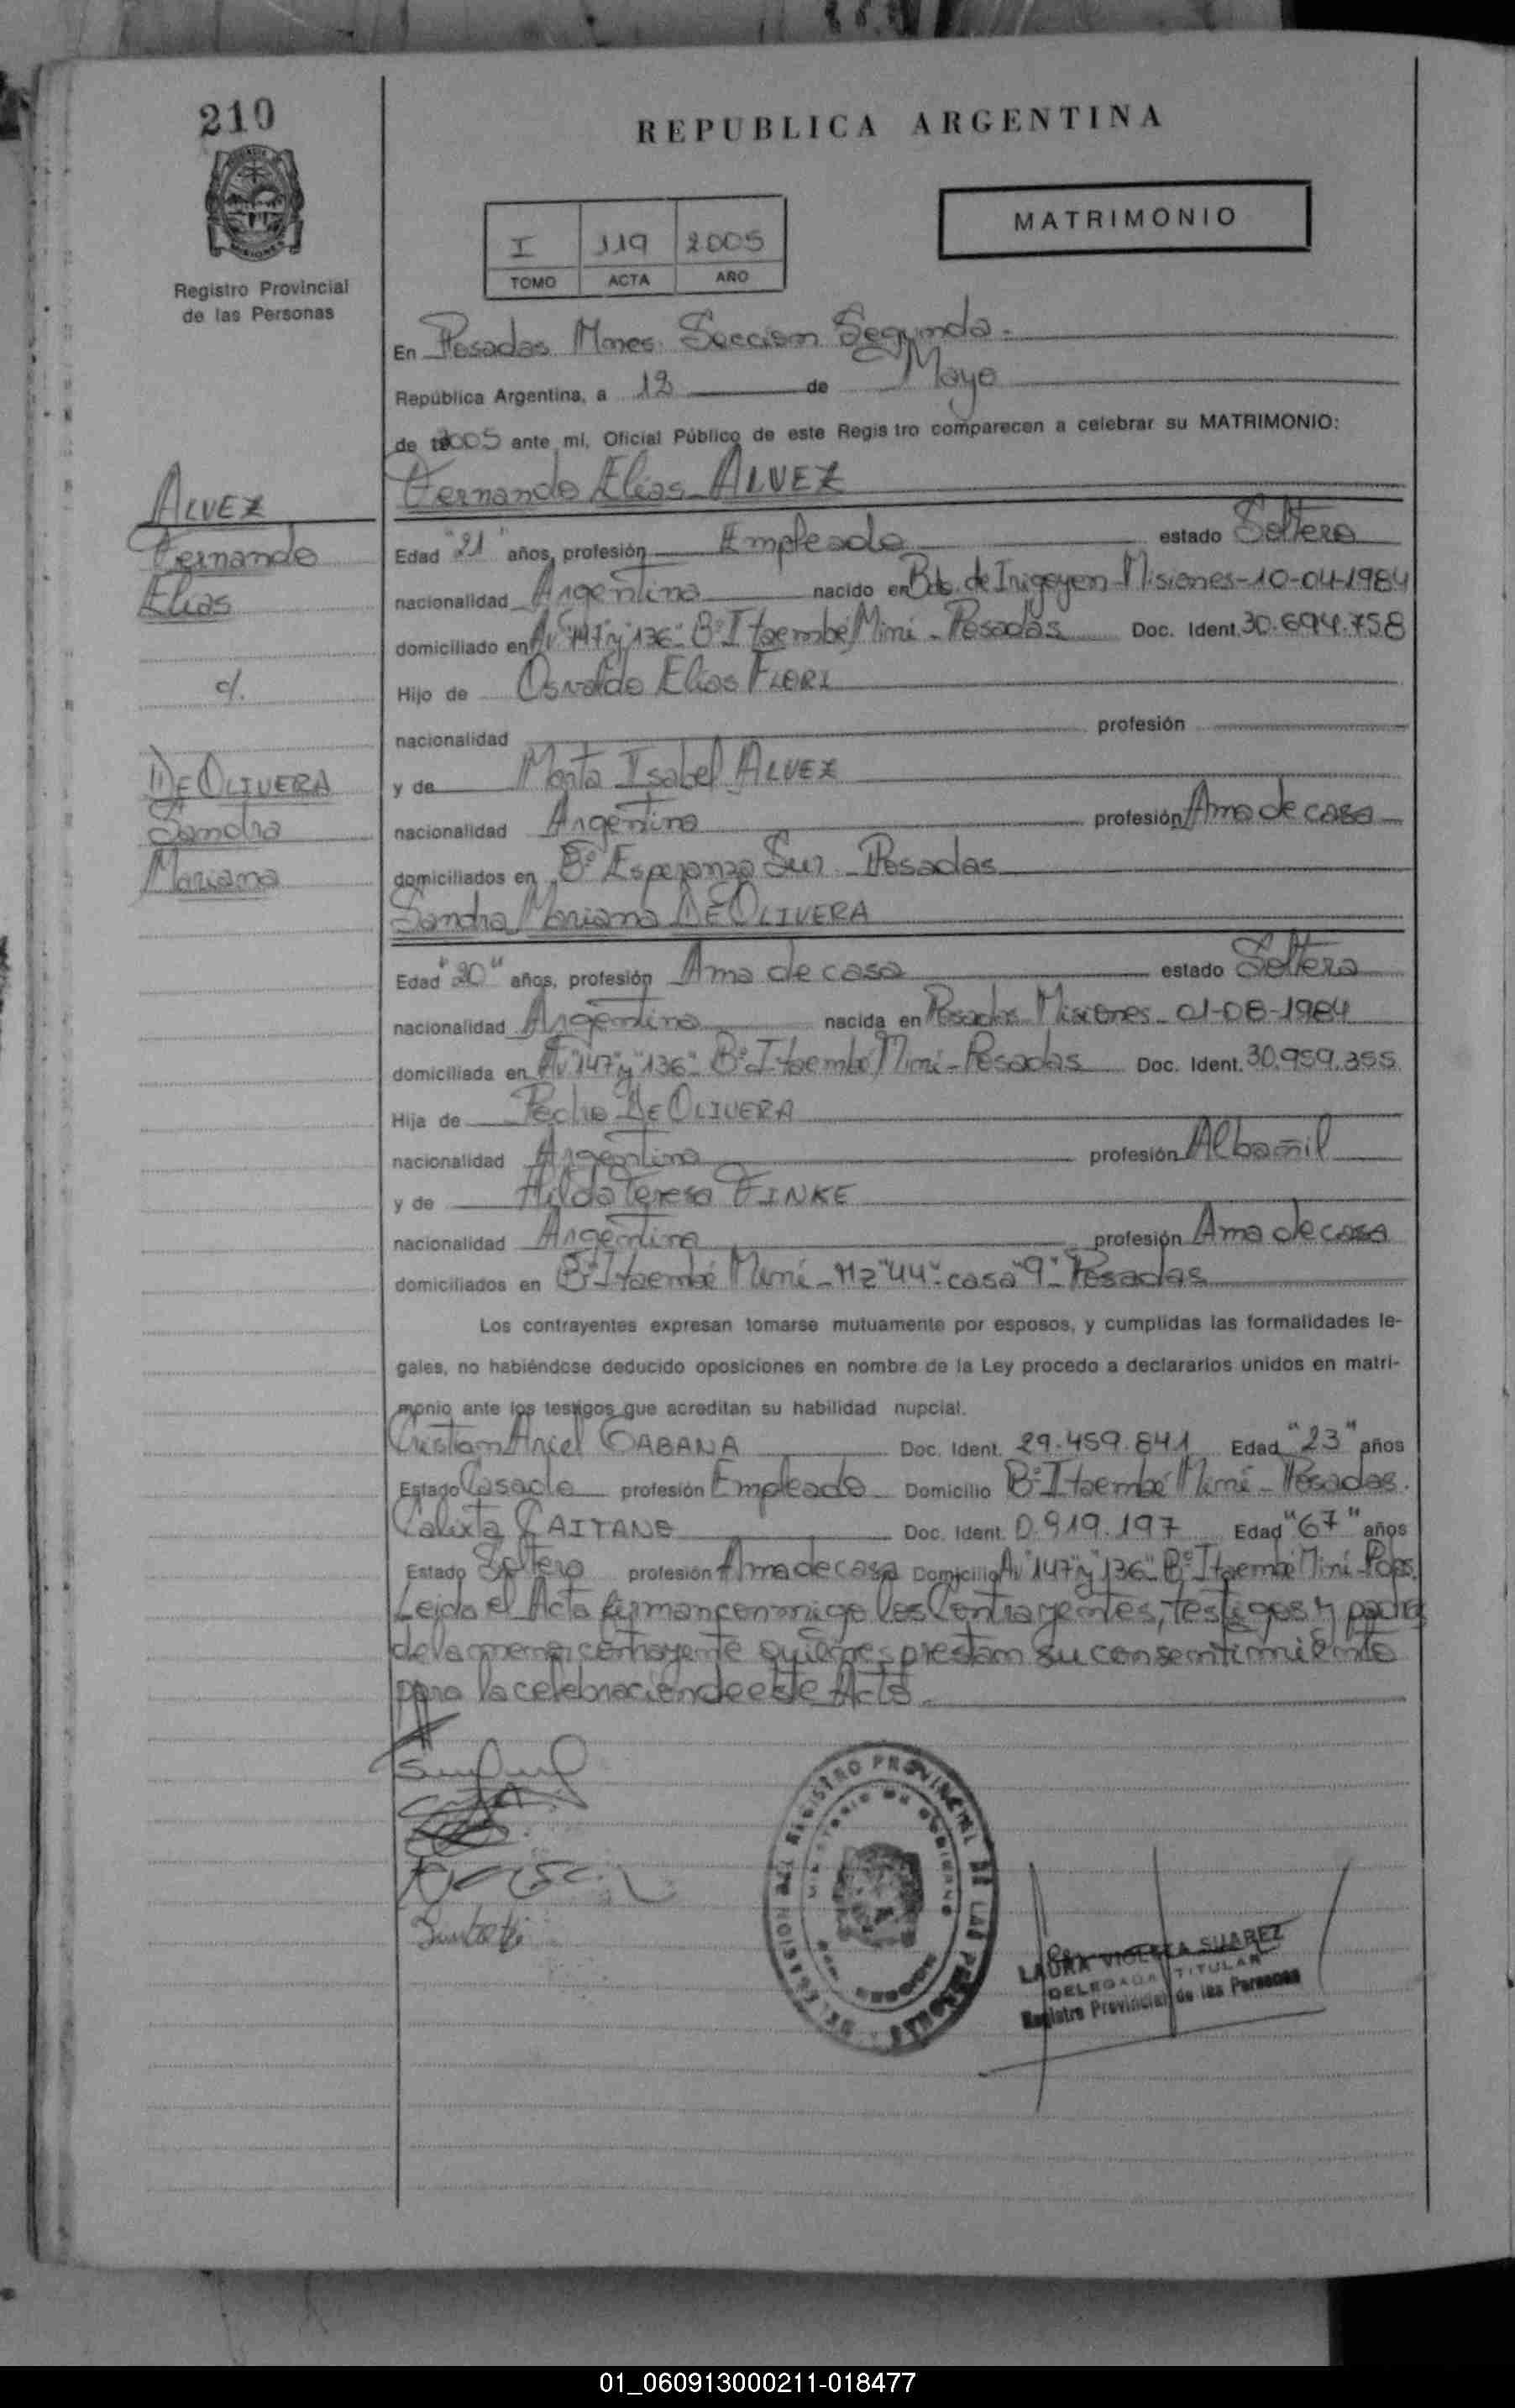 210
REPUBLICA ARGENTINA
MATRIMONIO
I 119 2005
TOMO ACTA AÑO
Registro Provincial
de las Personas
En Posadas Mnes. Seccion Segunda.
República Argentina, a de Mayo
de 2005 ante mí, Oficial Público de este Registro comparecen a celebrar su MATRIMONIO:
ALVEZ
Fernando
Elias
c/.
DE OLIVERA
Sandra
Mariana
Fernando Elias ALVEZ
Edad "21" años, profesión Empleado estado Soltero
nacionalidad Argentina nacido en Bdo. de Irigoyen Misiones-10-04-1984
domiciliado en Av "147" y "136" Bº Itaembé Miní - Posadas Doc. Ident. 30.694.758
Hijo de Osvaldo Elias FLORI
nacionalidad profesión
y de Marta Isabel ALVEZ
nacionalidad Argentina profesión Ama de casa
domiciliados en Bº Esperanza Sur - Posadas
Sandra Mariana DE OLIVERA
Edad "20" años, profesión Ama de casa estado Soltera
nacionalidad Argentina nacida en Posadas Misiones - 01-08-1984
domiciliada en Av "147" y "136" Bº Itaembé Miní - Posadas Doc. Ident. 30.959.355
Hija de Pedro DE OLIVERA
nacionalidad Argentina profesión Albañil
y de Hilda Teresa FINKE
nacionalidad Argentina profesión Ama de casa
domiciliados en Bº Itaembé Miní - Mz "44" - casa "9" - Posadas
Los contrayentes expresan tomarse mutuamente por esposos, y cumplidas las formalidades le-
gales, no habiéndose deducido oposiciones en nombre de la Ley procedo a declararlos unidos en matri-
monio ante los testigos que acreditan su habilidad nupcial.
Cristian Ariel CABANA Doc. Ident. 29.459.841 Edad "23" años
Estado Casado profesión Empleado Domicilio Bº Itaembé Miní - Posadas.
Calixta GAITANE Doc. Ident. 0.919.197 Edad "67" años
Estado Soltera profesión Ama de casa Domicilio Av "147" y "136" Bº Itaembé Miní - Pdas.
Leida el Acta firman conmigo los Contrayentes, testigos y padres
de la menor contrayente quienes prestan su consentimiento
para la celebracion de este Acto.
REGISTRO PROVINCIAL DE LAS PERSONAS
MINISTERIO DE GOBIERNO
LAURA VIOLETA SUAREZ
DELEGADA TITULAR
Registro Provincial de las Personas
01_060913000211-018477